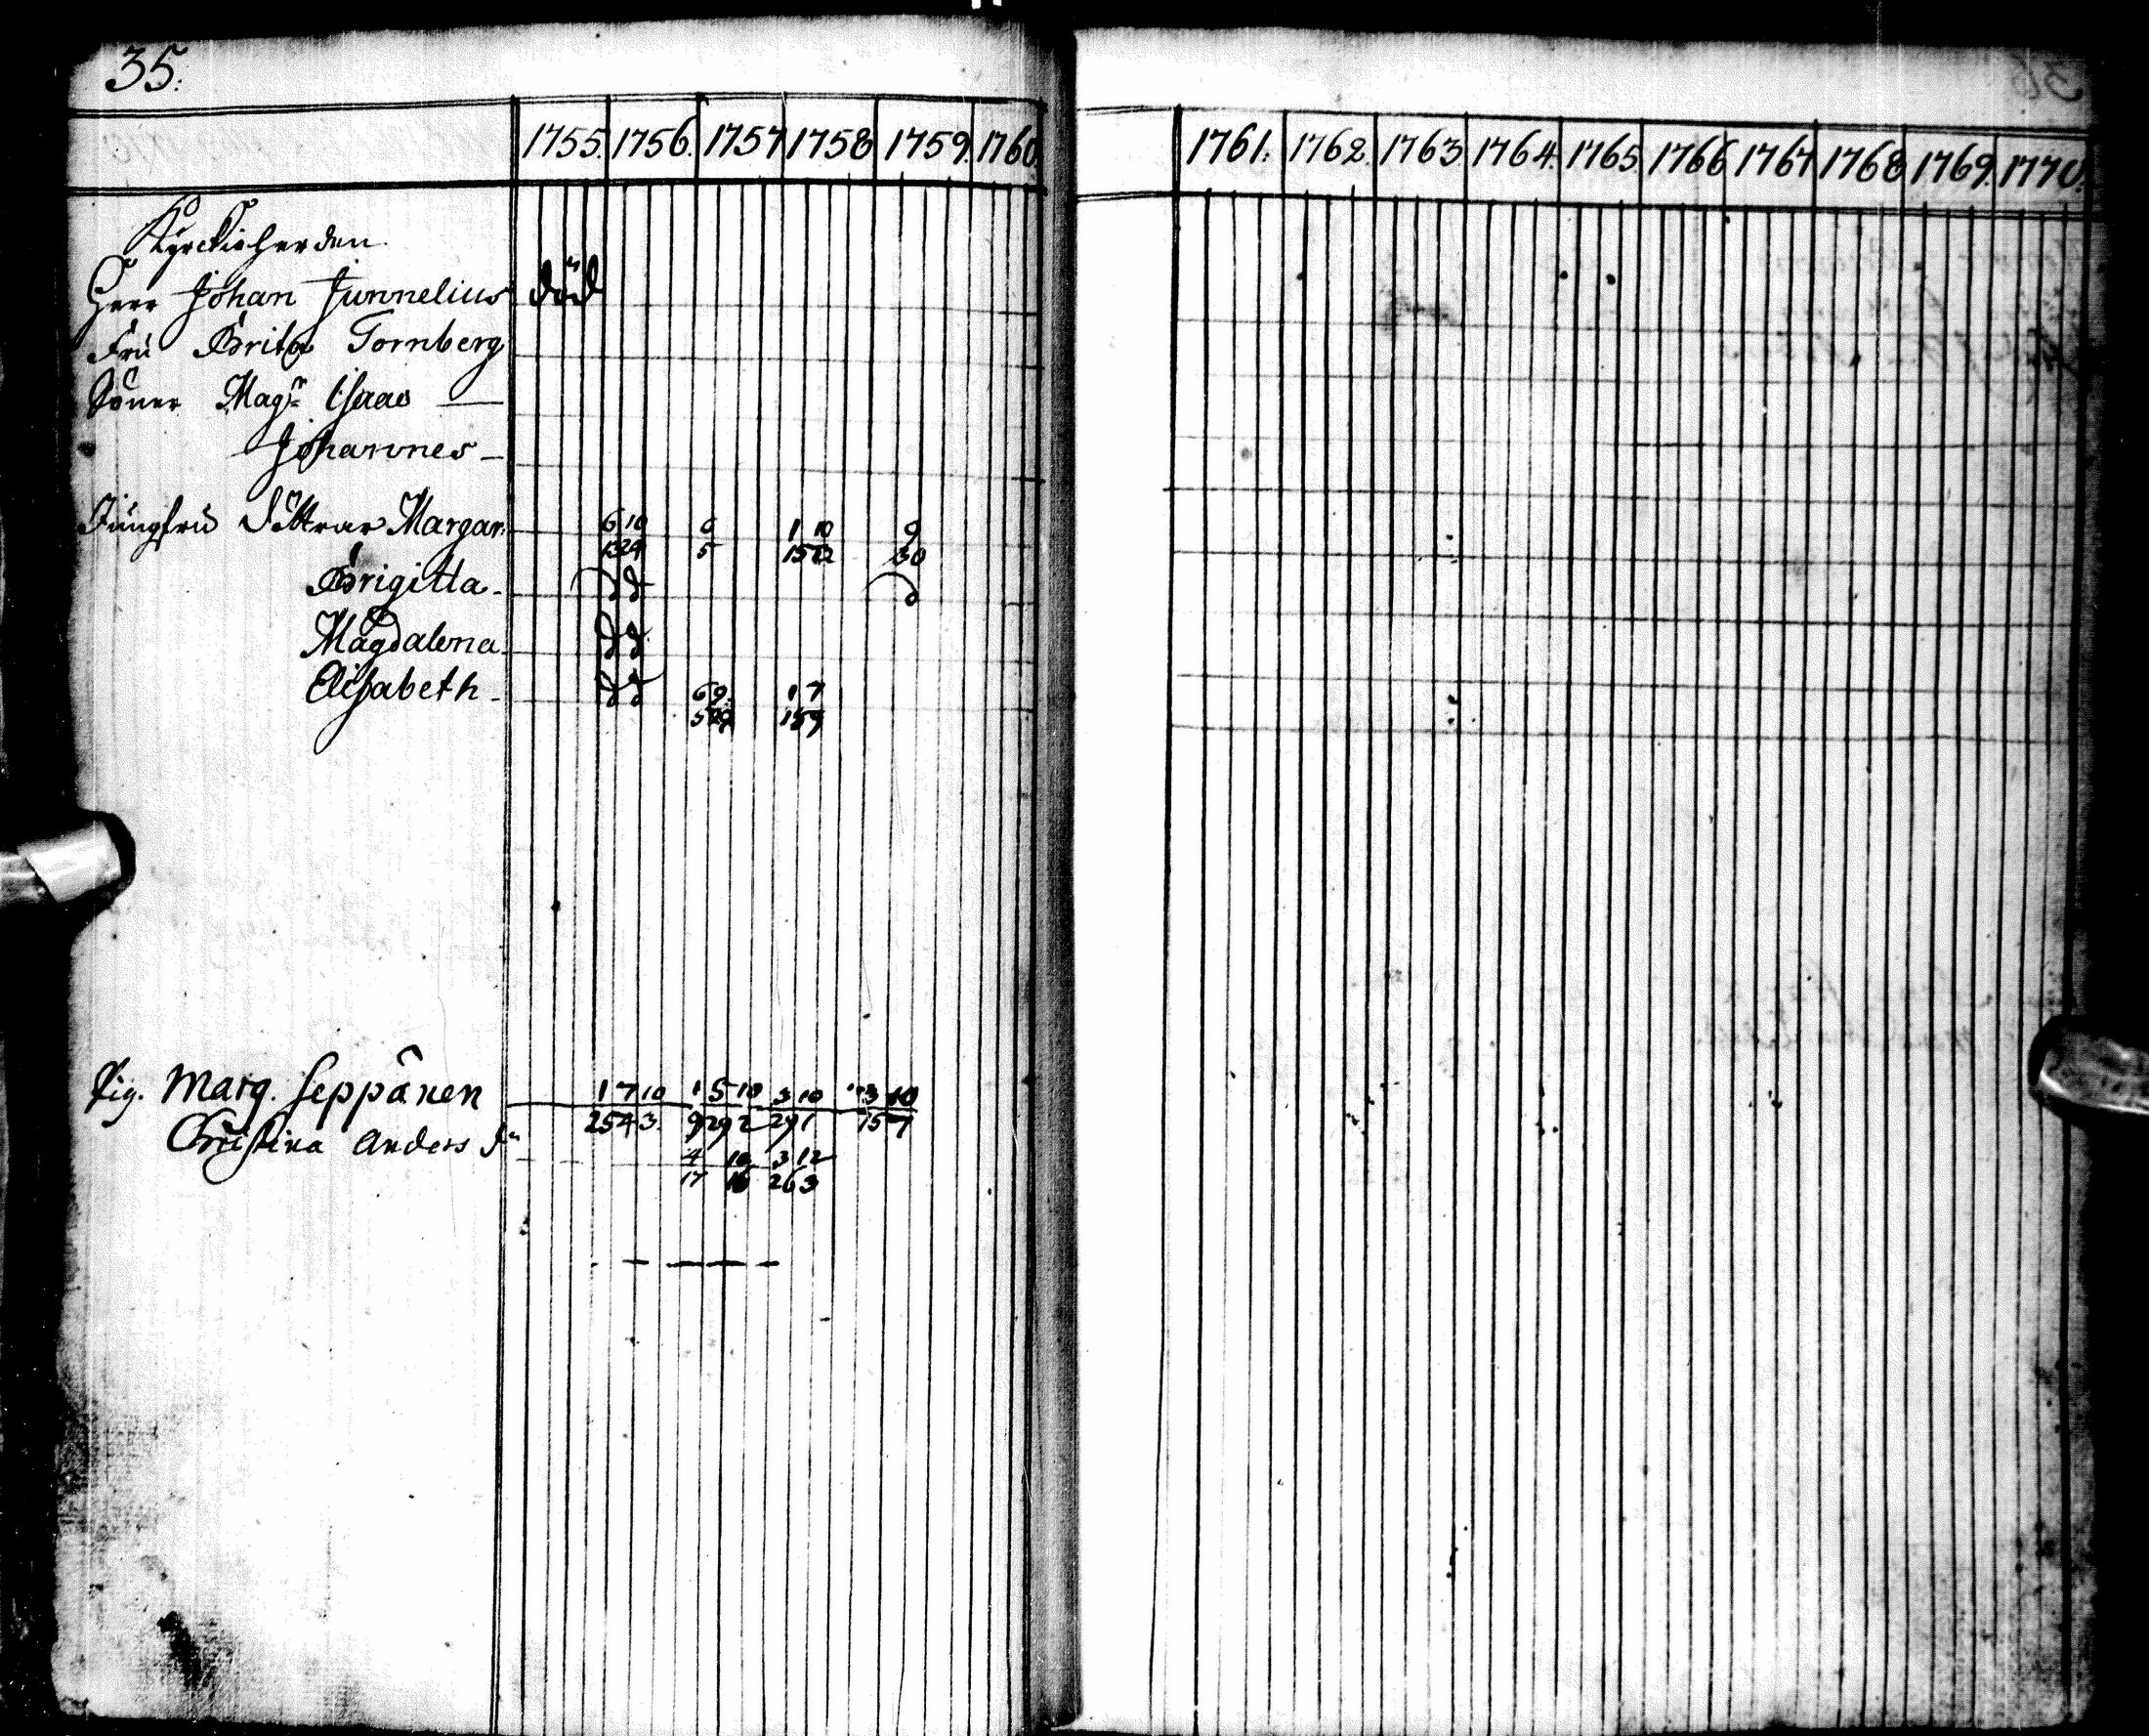 35.
1755. 1756. 1757 1758 1759. 1760.
1761. 1762. 1763. 1764. 1765. 1766 1767 1768 1769. 1770.
Kyrckioherden
Herr Johan Junnelius död
Fru Brita Tornberg
Söner Magr Isaac
Johannes
Jungfru Döttrar Margar: 6 10 6 1 10 9
5 15 30
Brigitta
Magdalena
Elisabeth 6 9 1 7
Pig. Marg. Seppänen 1 7 10 1 5 10 3 10 3 10
25 4 3 9 29 2 29 1 15 7
Christina Anders dr
4 10 3 12
17 16 26 3